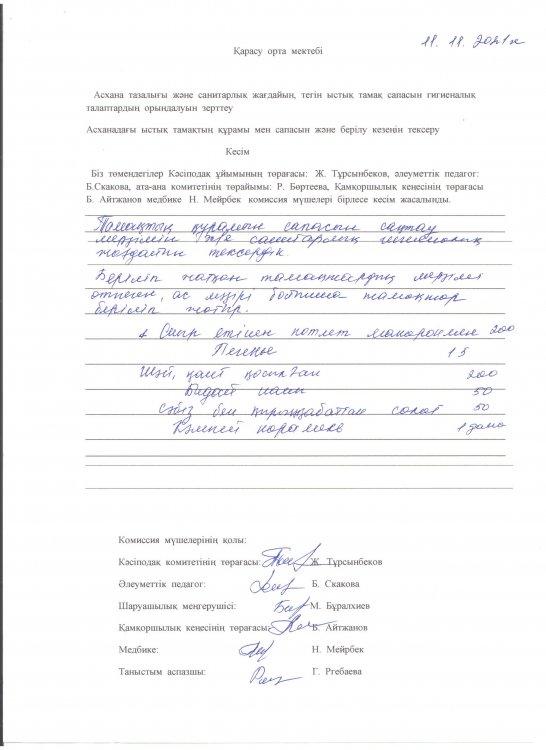 11. 11. 2021ж
Қарасу орта мектебі
Асхана тазалығы және санитарлық жағдайын, тегін ыстық тамақ сапасын гигиеналық
талаптардың орындалуын зерттеу
Асханадағы ыстық тамақтың құрамы мен сапасын және берілу кезеңін тексеру
Кесім
Біз төмендегілер Кәсіподақ ұйымының төрағасы: Ж. Тұрсынбеков, әлеуметтік педагог:
Б.Скакова, ата-ана комитетінің төрайымы: Р. Бөртеева, Қамқоршылық кенесінің төрағасы
Б. Айтжанов медбике Н. Мейрбек комиссия мүшелері бірлесе кесім жасалынды.
Тамақтың құрамын сапасын сақтау
мерзімін және санитарлық гигиеналық
жағдайын тексердік.
Беріліп жатқан тамақтардың мерзімі
өтпеген, ас мәзірі бойынша тамақтар
беріліп жатыр.
Сиыр етінен котлет макаронмен 200
Печенье 15
Шәй, қант қосылған 200
Бидай наны 50
Сәбіз бен қырыққабаттан салат 50
Кәмпит 1 дана
Комиссия мүшелерінің қолы:
Кәсіподақ комитетінің төрағасы: Ж. Тұрсынбеков
Әлеуметтік педагог: Б. Скакова
Шаруашылық меңгерушісі: М. Бұралхиев
Қамқоршылық кенесінің төрағасы: Б. Айтжанов
Медбике: Н. Мейрбек
Таныстым аспазшы: Г. Ргебаева